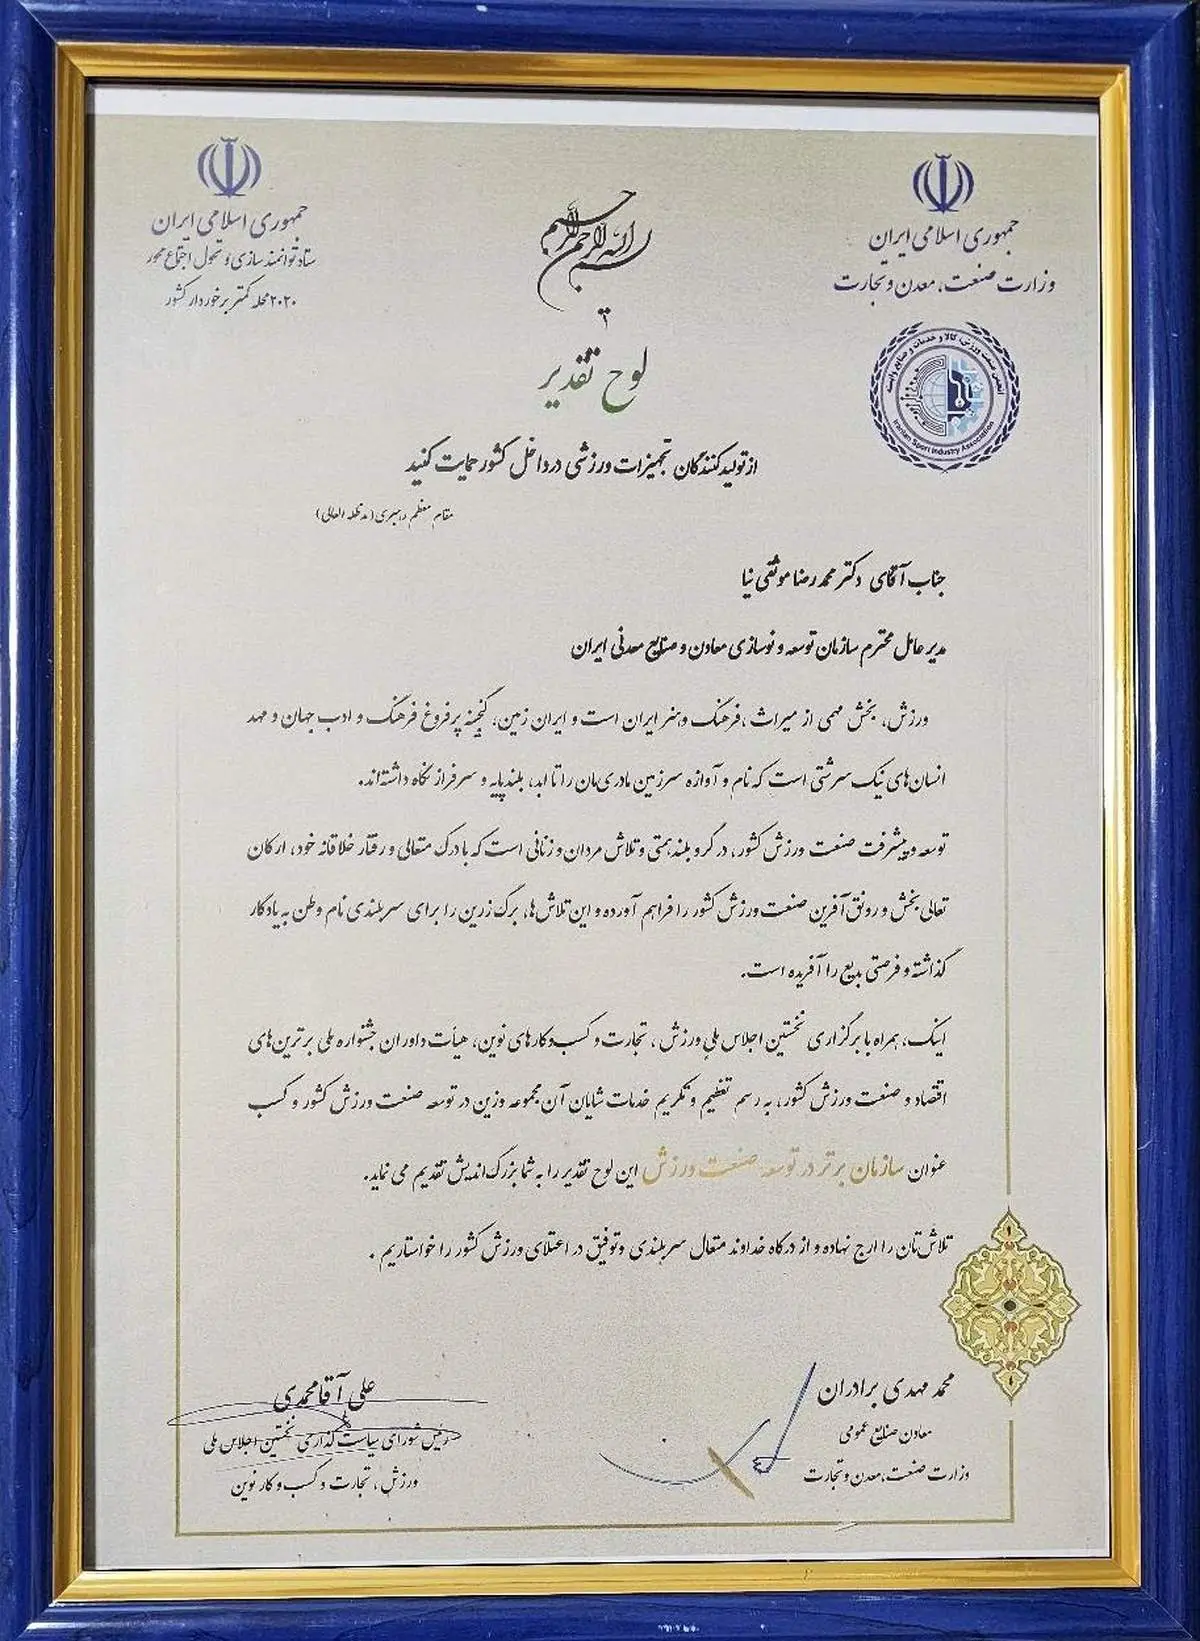 جمهوری اسلامی ایران
وزارت صنعت، معدن و تجارت
انجمن صنعت ورزش، کالا و خدمات و صنایع وابسته
Iranian Sport Industry Association
بسم الله الرحمن الرحیم
جمهوری اسلامی ایران
ستاد توانمندسازی و تحول اجتماع محور
۲۰۲۰ محله کمتر برخوردار کشور
لوح تقدیر
از تولیدکنندگان تجهیزات ورزشی در داخل کشور حمایت کنید
مقام معظم رهبری (مدظله العالی)
جناب آقای دکتر محمدرضا موثقی نیا
مدیر عامل محترم سازمان توسعه و نوسازی معادن و صنایع معدنی ایران
ورزش، بخش مهمی از میراث، فرهنگ و هنر ایران است و ایران زمین، گنجینه پرفروغ فرهنگ و ادب جهان و مهد
انسان‌های نیک سرشتی است که نام و آوازه سرزمین مادری‌مان را تا ابد، بلندپایه و سرفراز نگاه داشته‌اند.
توسعه و پیشرفت صنعت ورزش کشور، در گرو بلندهمتی و تلاش مردان و زنانی است که با درک متعالی و رفتار خلاقانه خود، ارکان
تعالی بخش و رونق آفرین صنعت ورزش کشور را فراهم آورده و این تلاش‌ها، برگ زرین را برای سربلندی نام وطن به یادگار
گذاشته و فرصتی بدیع را آفریده است.
اینک، همراه با برگزاری نخستین اجلاس ملی ورزش، تجارت و کسب‌وکارهای نوین، هیأت داوران جشنواره ملی برترین‌های
اقتصاد و صنعت ورزش کشور، به رسم تعظیم و تکریم خدمات شایان آن مجموعه وزین در توسعه صنعت ورزش کشور و کسب
عنوان سازمان برتر در توسعه صنعت ورزش این لوح تقدیر را به شما بزرگ‌اندیش تقدیم می نماید.
تلاش‌تان را ارج نهاده و از درگاه خداوند متعال سربلندی و توفیق در اعتلای ورزش کشور را خواستاریم.
محمد مهدی برادران
معاون صنایع عمومی
وزارت صنعت، معدن و تجارت
علی آقامحمدی
رئیس شورای سیاست گذاری نخستین اجلاس ملی
ورزش، تجارت و کسب و کار نوین